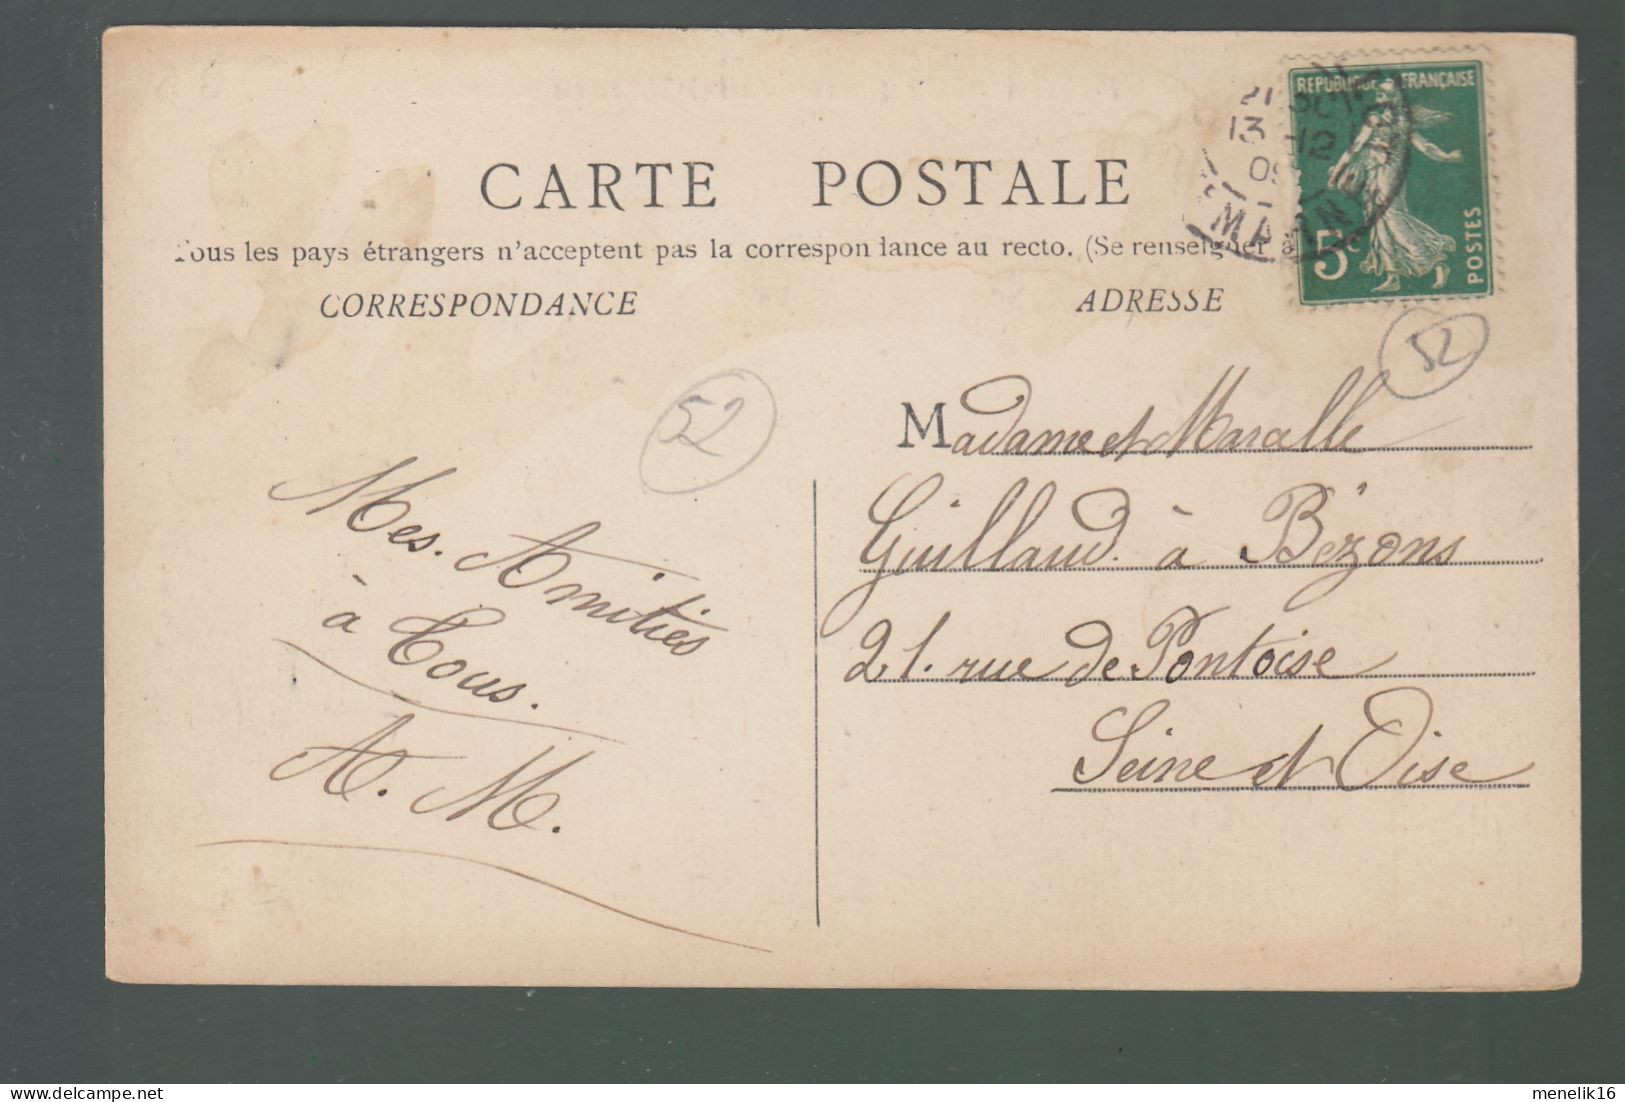 CARTE POSTALE
Tous les pays étrangers n'acceptent pas la correspondance au recto. (Se renseigner à
CORRESPONDANCE
ADRESSE
REPUBLIQUE FRANÇAISE
5c
POSTES
13 12
09
52
52
Mes. Amitiés
à Tous.
A. M.
Madame et Marcelle
Guillaud. à Bézons
21. rue de Pontoise
Seine et Oise
menelik16